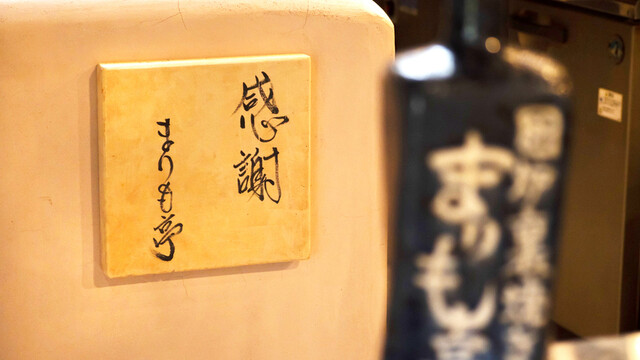 感謝
まりも亭
まりも